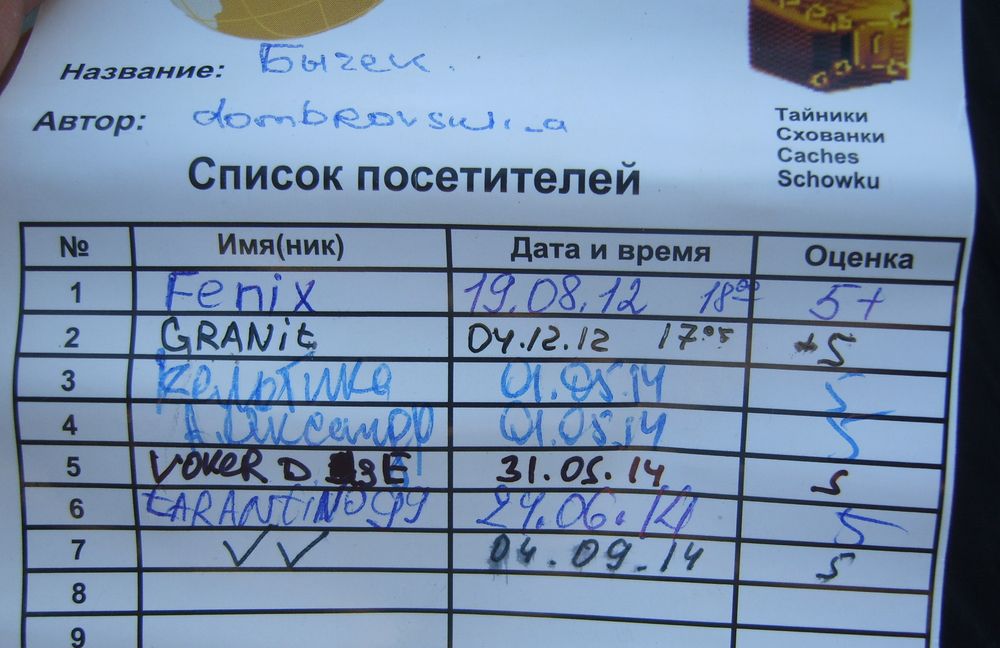 Название: Бычек.
Автор:
Тайники
Схованки
Caches
Schowku
Список посетителей
№ Имя(ник) Дата и время Оценка
1 Fenix 19.08.12 18°° 5+
2 GRANit 04.12.12 17°⁵ +5
3 01.05.14 5
4 01.05.14 5
5 VOKER D 31.05.14 5
6 tARANtINO99 24.06.14 5
7 VV 04.09.14 5
8
9